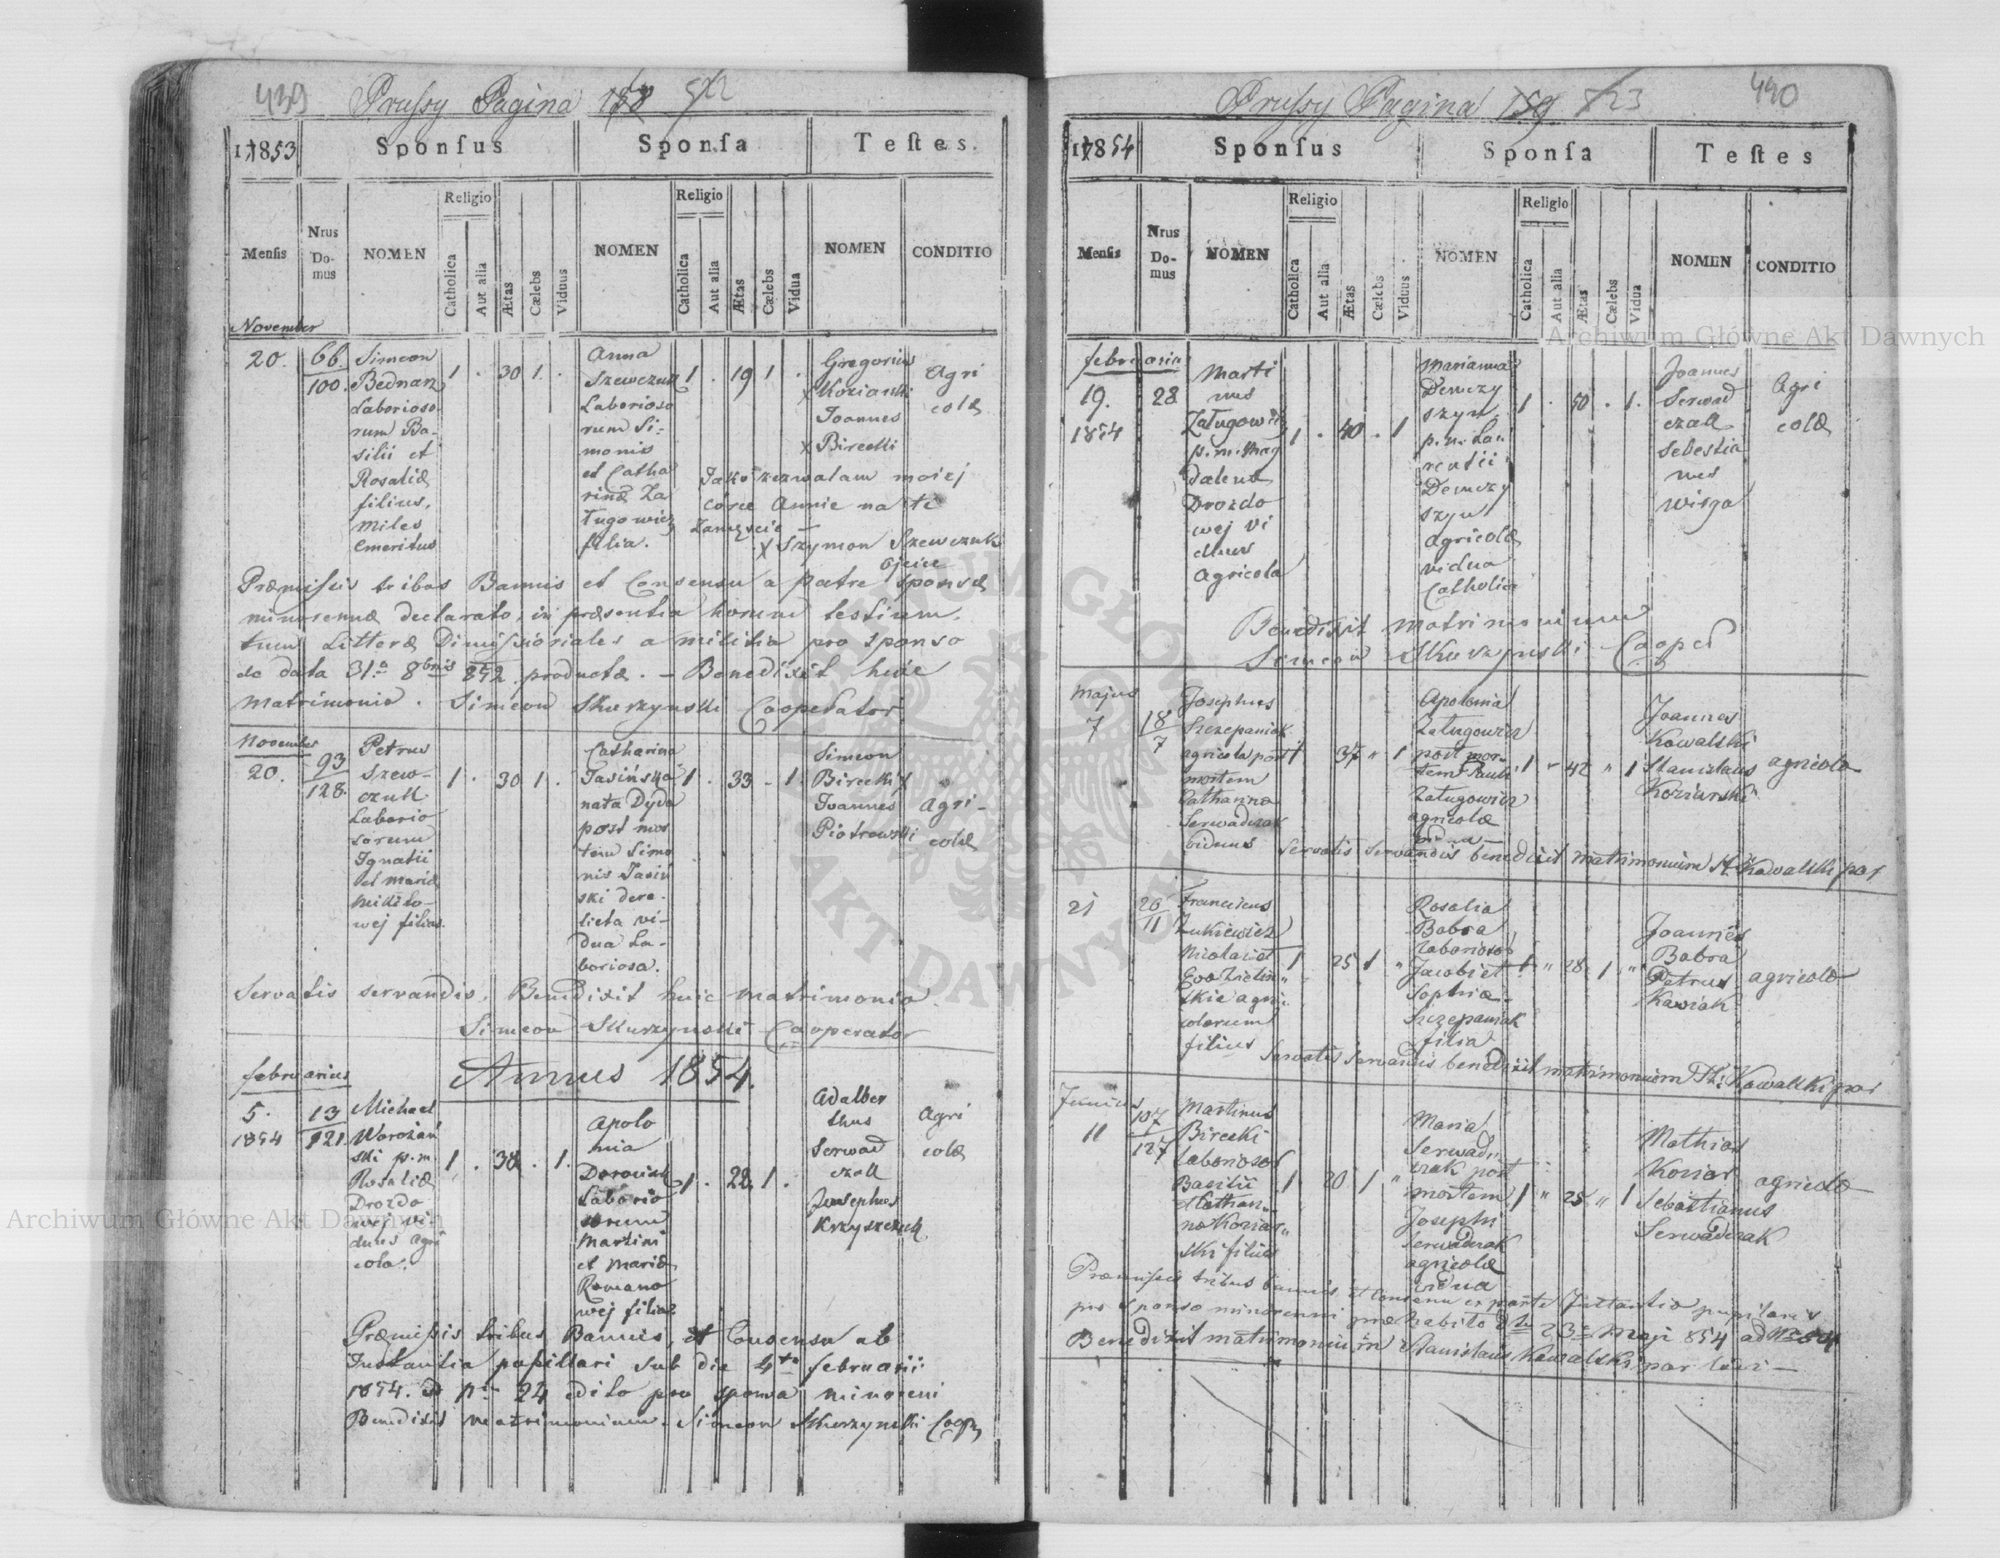 439 Prussy Pagina 158 522
1853 Sponsus Sponsa Testes.
Religio Religio
Mensis Nrus Domus NOMEN Catholica Aut alia Ætas Cælebs Viduus NOMEN Catholica Aut alia Ætas Cælebs Vidua NOMEN CONDITIO
November
20. 66/100.
Simeon
Bednarz
Laborioso
rum Ba-
silii et
Rosaliæ
filius,
Miles
emeritus
1 . 30 1 .
Anna
Szewczuk
Laborioso
rum Si-
monis
et Catha
rinæ Za
ługowicz
filia.
1 . 19 1 .
Gregorius
x Kozianski
Joannes
x Birecki
Agri
colæ
Jako zezwalam mojej
córce Annie na te
Zamęście —
x Szymon Szewczuk
ojciec
Præmissis tribus Bannis et Consensu a patre sponsæ
minorennæ declarato, in præsentia horum testium,
tum Litteræ Dimissoriales a militia pro sponso
de data 31.a 8bris 852 productæ. — Benedixit huic
Matrimonio. Simeon Skurzynski Cooperator
November
20. 93/128.
Petrus
Szew-
czuk
Laborio
sorum
Ignatii
et Mariæ
Mikito-
wej filius.
1 . 30 1 .
Catharina
Jasińska
nata Dyda
post mor
tem Simo
nis Jasiń
ski dere-
licta vi-
dua La-
boriosa.
1 . 33 - 1.
Simeon
Birecki x
Joannes
Piotrowski
Agri-
colæ
Servatis servandis. Benedixit huic matrimonio
Simeon Skurzynski Cooperator
Annus 1854.
februarius
5. 13
1854 121
Michael
Worożań
ski p.m.
Rosaliæ
Drozdo
wej vi
duus agri
cola.
1. . 38 . 1.
Apolo
nia
Dorociak
Laborio
sorum
Martini
et Mariæ
Romano
wej filia
1 . 22 1 .
Adalber
thus
Serwad
czak
Josephus
Krzyszczuk
Agri
colæ
Præmissis tribus Bannis, et Consensu ab
Instantia pupillari sub die 4ta februarii
1854. 24 edito pro sponsa minoreni
Benedixit matrimonium. Simeon Skurzynski Coop
Prussy Pagina 159 523 440
1854 Sponsus Sponsa Testes
Religio Religio
Mensis Nrus Domus NOMEN Catholica Aut alia Ætas Cælebs Viduus NOMEN Catholica Aut alia Ætas Cælebs Vidua NOMEN CONDITIO
februarius
19. 28
1854
Marti
nus
Załugowicz
p.m. Mag
dalenæ
Drozdo
wej vi
duus
agricola
1 . 40 . 1
Marianna
Demczy
szyn
p.m. Lau
rentii
Demczy
szyn
agricolæ
vidua
Catholica
1 . 50 . 1.
Joannes
Serwad
czak
Sebestia
nus
Wisga
Agri
colæ
Benedixit matrimonium
Simeon Skurzynski Cooper
Majus
7 18/7
Josephus
Szczepaniak
agricola post
mortem
Catharinæ
Serwadczak
viduus
1 37 " 1
Apolonia
Załugowicz
post mor-
tem Pauli
Załugowicz
agricolæ
vidua
1 " 42 " 1
Joannes
Kowalski
Stanislaus
Koziarski
agricolæ
Servatis servandis benedixit matrimonium St. Kowalski par
21 26/11
Franciscus
Zukiewicz
Nicolai et
Eva Zielin
skie agri
colarum
filius
1 25 1 "
Rosalia
Babra
Laborioso
Jacobi et
Sophiæ
Szczepaniak
filia
1 " 28 1 "
Joannes
Babra
Petrus
Kawiak
agricolæ
Servatis servandis benedixit matrimonium St: Kowalski par
Junius
11 107/127
Martinus
Birecki
Laboriosor
Basilii
et Cathari
na Koziar
ski filius
1 20 1 "
Maria
Serwad
czak post
mortem
Josephi
Serwadczak
agricolæ
vidua
1 " 25 " 1
Mathias
Koziar
Sebastianus
Serwadczak
agricolæ
Præmissis tribus bannis et Consensu ex parte Instantiæ pupilaris
pro sponso minorenni præhabito dto 23 Maji 854 ad
Benedixit matrimonium Stanislaus Kowalski par loci —
Archiwum Główne Akt Dawnych
Archiwum Główne Akt Dawnych
ARCHIWUM GŁÓWNE
AKT DAWNYCH